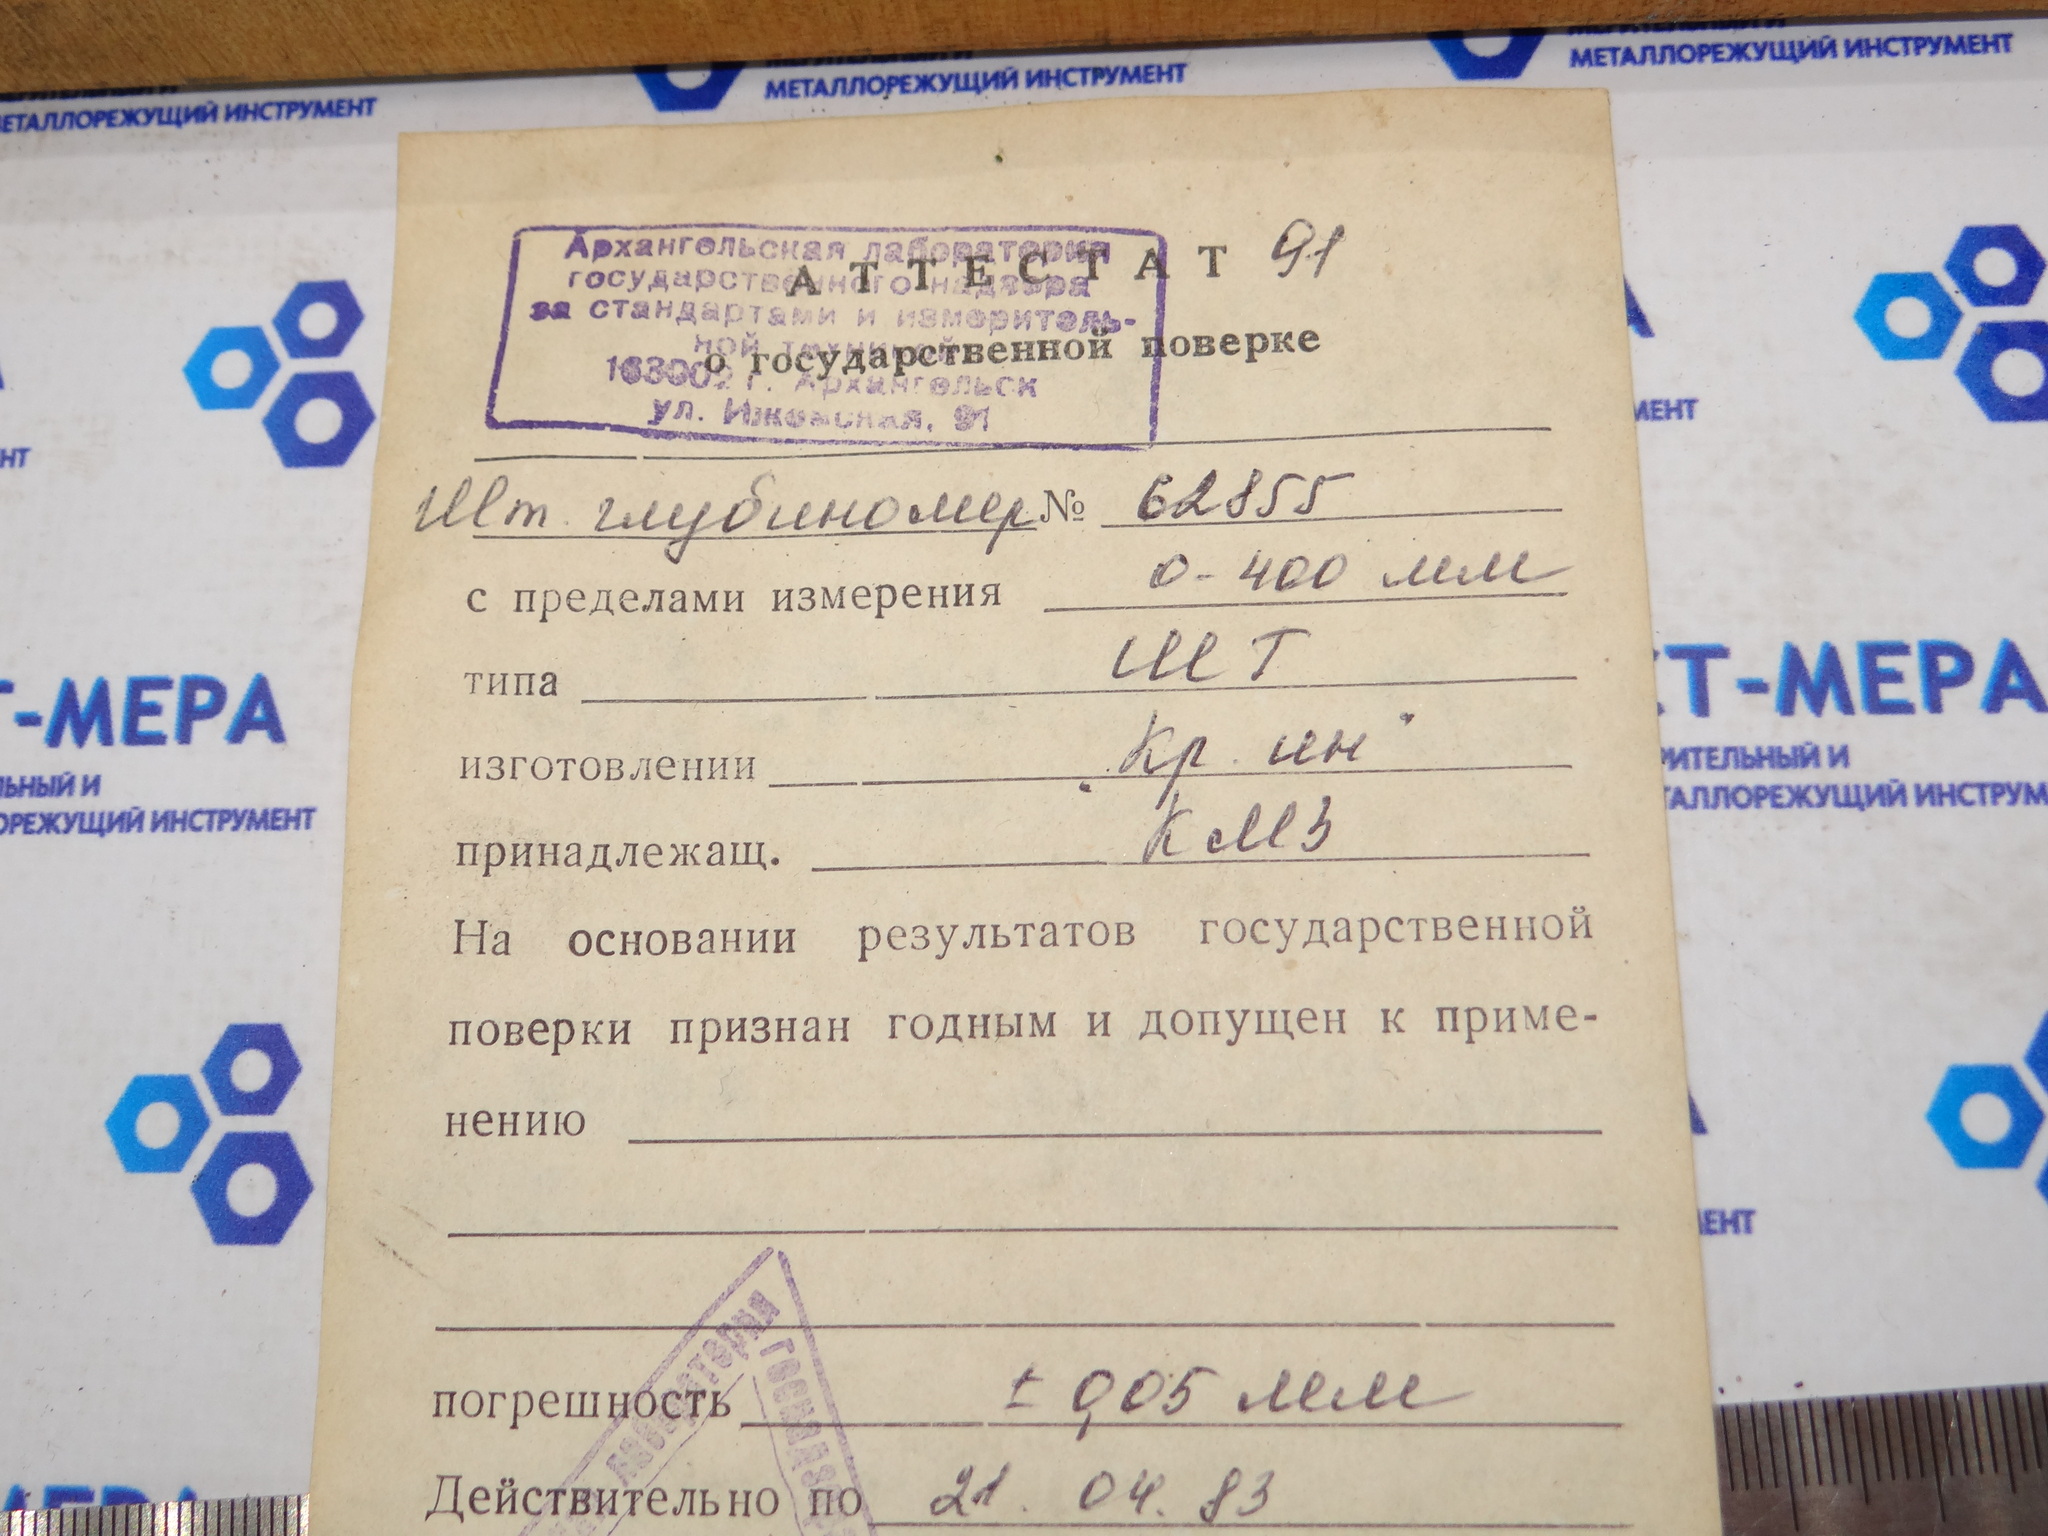 МЕТАЛЛОРЕЖУЩИЙ ИНСТРУМЕНТ
МЕТАЛЛОРЕЖУЩИЙ ИНСТРУМЕНТ
МЕТАЛЛОРЕЖУЩИЙ ИНСТРУМЕНТ
Архангельская лаборатория
государственного надзора
за стандартами и измеритель-
ной техникой
163002 г. Архангельск
ул. Ижемская, 91
АТТЕСТАТ 91
о государственной поверке
Шт. глубиномер № 62855
с пределами измерения 0-400 мм
типа ШТ
изготовлении Кр. ин
принадлежащ. КМЗ
На основании результатов государственной
поверки признан годным и допущен к приме-
нению
погрешность ± 0,05 мм
Действительно по 21. 04. 83
лаборатория
госнадз
Т-МЕРА
ЛЬНЫЙ И
ОРЕЖУЩИЙ ИНСТРУМЕНТ
СТ-МЕРА
РИТЕЛЬНЫЙ И
ТАЛЛОРЕЖУЩИЙ ИНСТРУМ